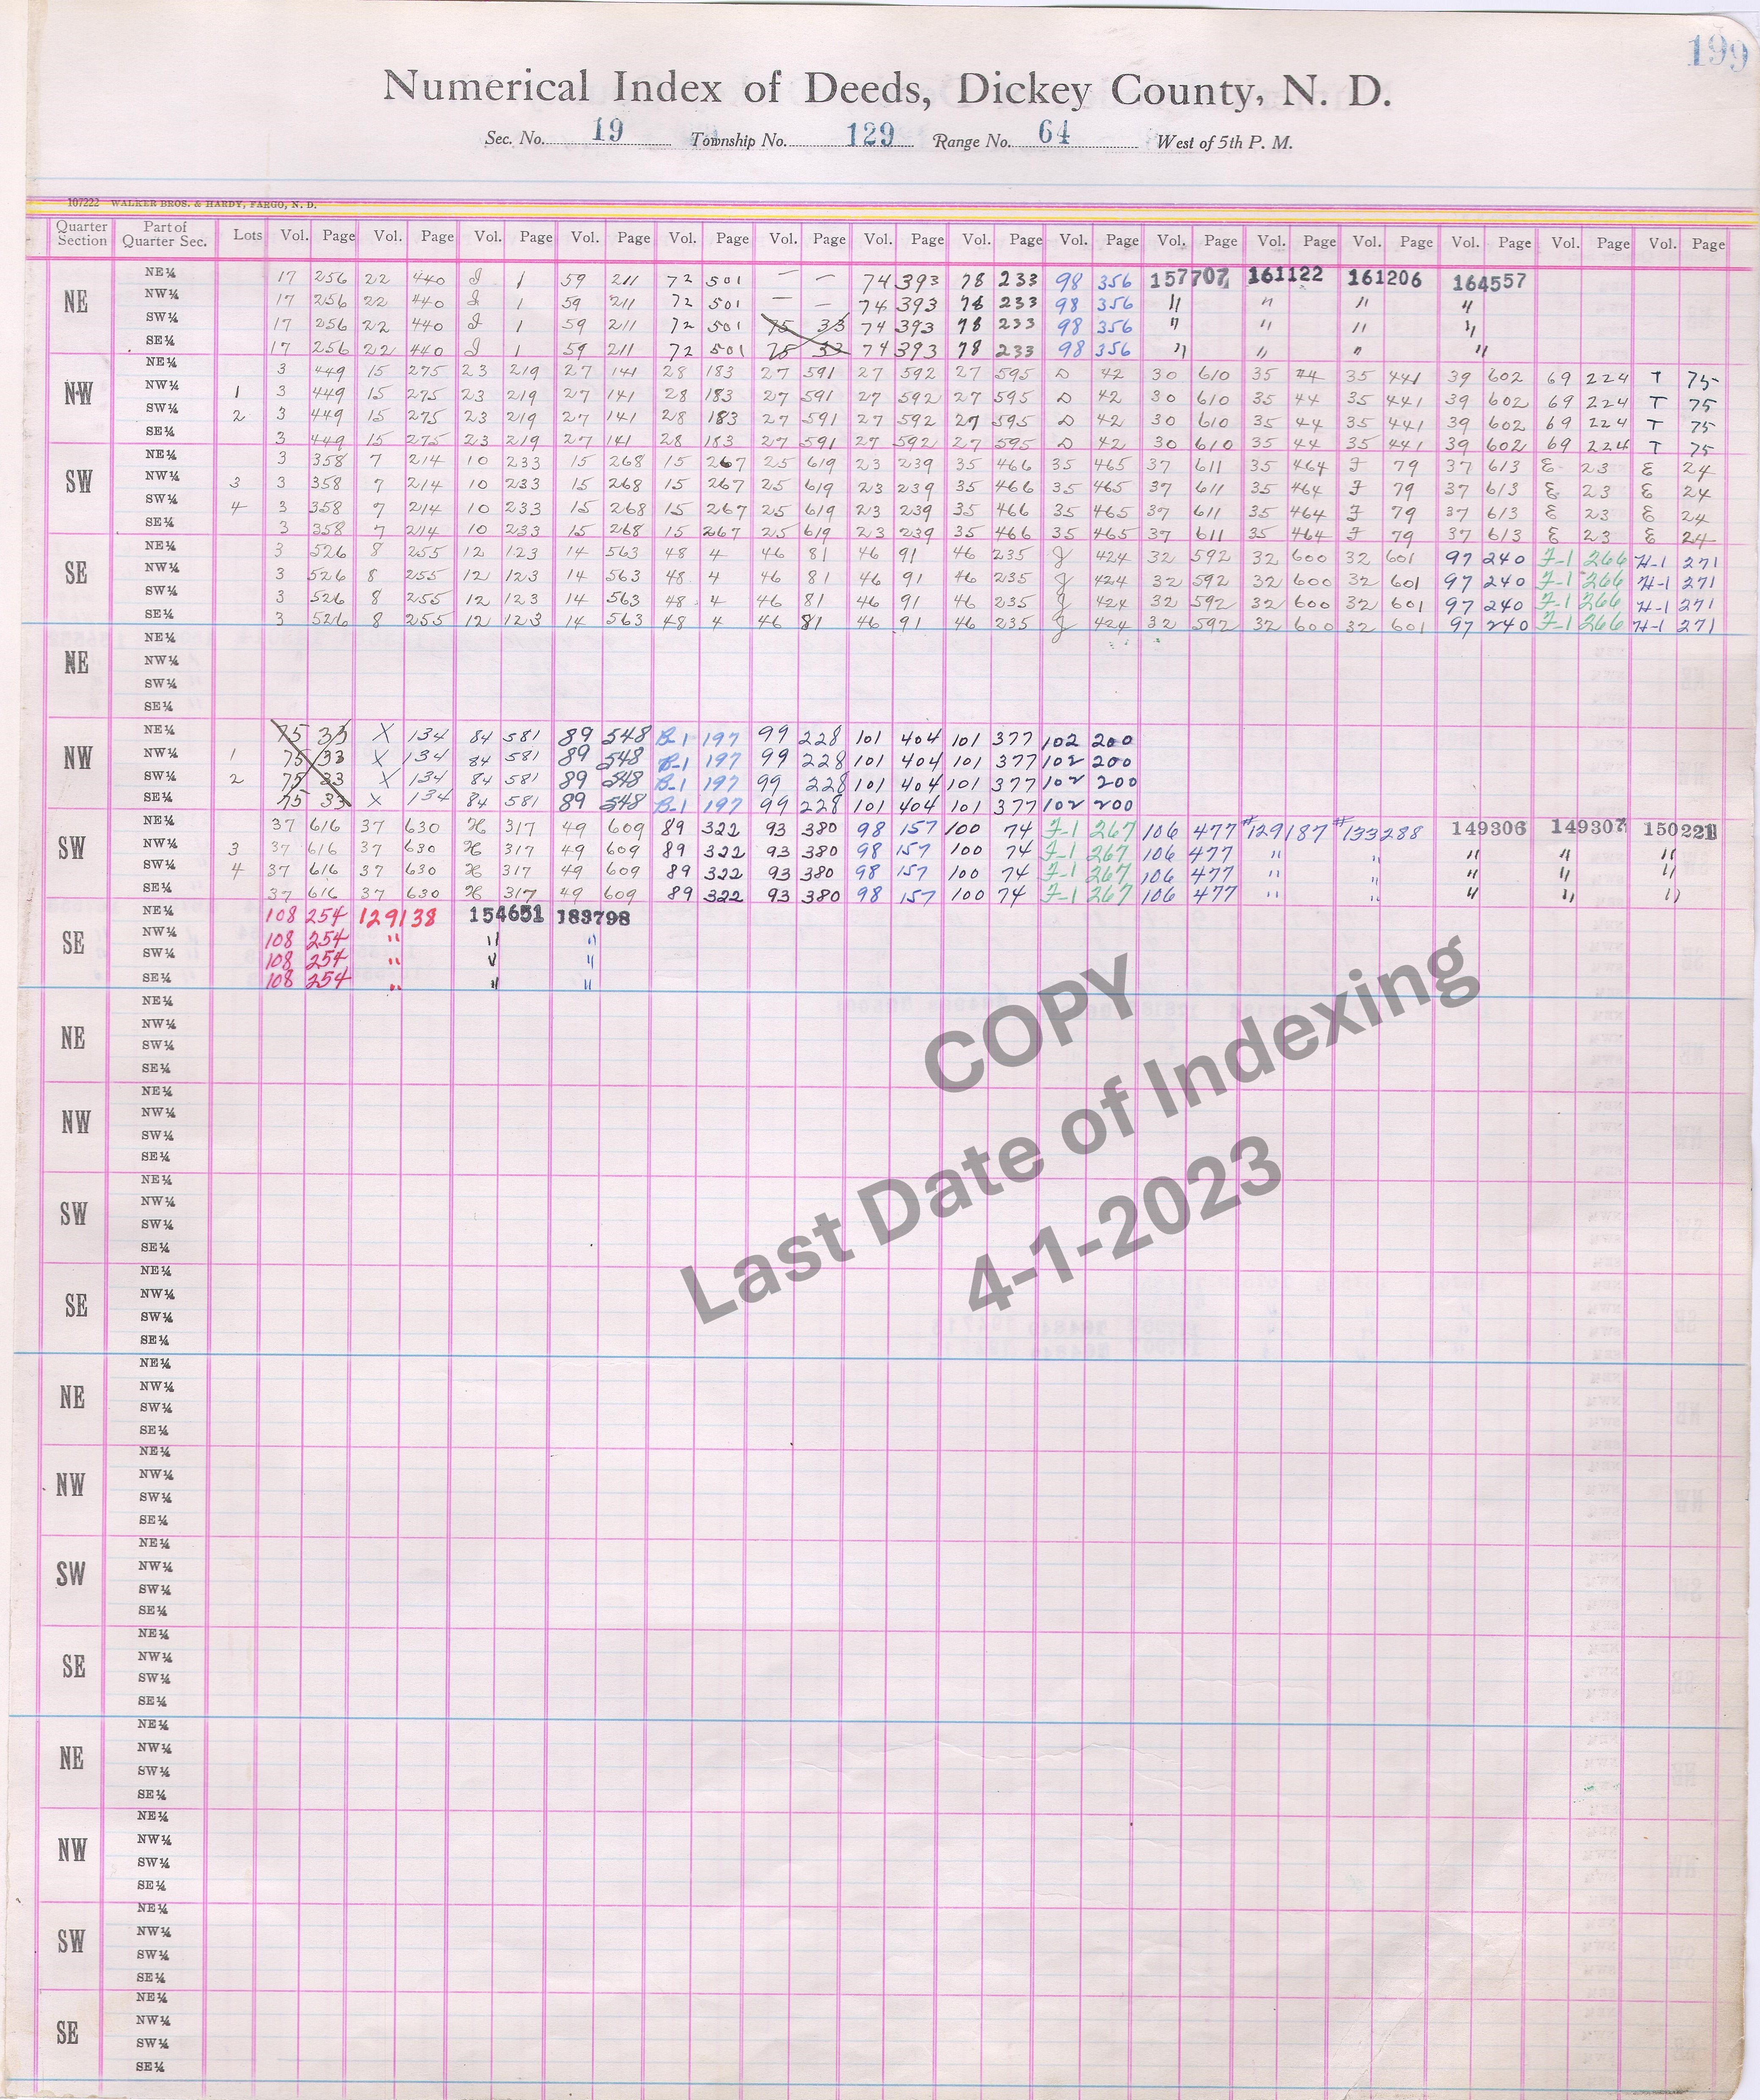 199
Numerical Index of Deeds, Dickey County, N. D.
Sec. No. 19 Township No. 129 Range No. 64 West of 5th P. M.
107222 WALKER BROS. & HARDY, FARGO, N. D.
Quarter Section Part of Quarter Sec. Lots Vol. Page Vol. Page Vol. Page Vol. Page Vol. Page Vol. Page Vol. Page Vol. Page Vol. Page Vol. Page Vol. Page Vol. Page Vol. Page Vol. Page Vol. Page
NE
NE¼ 17 256 22 440 I 1 59 211 72 501 — — 74 393 78 233 98 356 157707 161122 161206 164557
NW¼ 17 256 22 440 I 1 59 211 72 501 — — 74 393 78 233 98 356 " " " "
SW¼ 17 256 22 440 I 1 59 211 72 501 75 33 74 393 78 233 98 356 " " " "
SE¼ 17 256 22 440 I 1 59 211 72 501 75 33 74 393 78 233 98 356 " " " "
NW
NE¼ 3 449 15 275 23 219 27 141 28 183 27 591 27 592 27 595 D 42 30 610 35 44 35 441 39 602 69 224 T 75
NW¼ 1 3 449 15 275 23 219 27 141 28 183 27 591 27 592 27 595 D 42 30 610 35 44 35 441 39 602 69 224 T 75
SW¼ 2 3 449 15 275 23 219 27 141 28 183 27 591 27 592 27 595 D 42 30 610 35 44 35 441 39 602 69 224 T 75
SE¼ 3 449 15 275 23 219 27 141 28 183 27 591 27 592 27 595 D 42 30 610 35 44 35 441 39 602 69 224 T 75
SW
NE¼ 3 358 7 214 10 233 15 268 15 267 25 619 23 239 35 466 35 465 37 611 35 464 F 79 37 613 E 23 E 24
NW¼ 3 3 358 7 214 10 233 15 268 15 267 25 619 23 239 35 466 35 465 37 611 35 464 F 79 37 613 E 23 E 24
SW¼ 4 3 358 7 214 10 233 15 268 15 267 25 619 23 239 35 466 35 465 37 611 35 464 F 79 37 613 E 23 E 24
SE¼ 3 358 7 214 10 233 15 268 15 267 25 619 23 239 35 466 35 465 37 611 35 464 F 79 37 613 E 23 E 24
SE
NE¼ 3 526 8 255 12 123 14 563 48 4 46 81 46 91 46 235 J 424 32 592 32 600 32 601 97 240 F-1 266 H-1 271
NW¼ 3 526 8 255 12 123 14 563 48 4 46 81 46 91 46 235 J 424 32 592 32 600 32 601 97 240 F-1 266 H-1 271
SW¼ 3 526 8 255 12 123 14 563 48 4 46 81 46 91 46 235 J 424 32 592 32 600 32 601 97 240 F-1 266 H-1 271
SE¼ 3 526 8 255 12 123 14 563 48 4 46 81 46 91 46 235 J 424 32 592 32 600 32 601 97 240 F-1 266 H-1 271
NE
NE¼
NW¼
SW¼
SE¼
NW
NE¼ 75 33 X 134 84 581 89 548 B-1 197 99 228 101 404 101 377 102 200
NW¼ 1 75 33 X 134 84 581 89 548 B-1 197 99 228 101 404 101 377 102 200
SW¼ 2 75 33 X 134 84 581 89 548 B-1 197 99 228 101 404 101 377 102 200
SE¼ 75 33 X 134 84 581 89 548 B-1 197 99 228 101 404 101 377 102 200
SW
NE¼ 37 616 37 630 H 317 49 609 89 322 93 380 98 157 100 74 F-1 267 106 477 #129187 #133288 149306 149307 150221
NW¼ 3 37 616 37 630 H 317 49 609 89 322 93 380 98 157 100 74 F-1 267 106 477 " " " " "
SW¼ 4 37 616 37 630 H 317 49 609 89 322 93 380 98 157 100 74 F-1 267 106 477 " " " " "
SE¼ 37 616 37 630 H 317 49 609 89 322 93 380 98 157 100 74 F-1 267 106 477 " " " " "
SE
NE¼ 108 254 129138 154651 183798
NW¼ 108 254 " " "
SW¼ 108 254 " " "
SE¼ 108 254 " " "
NE
NE¼
NW¼
SW¼
SE¼
NW
NE¼
NW¼
SW¼
SE¼
SW
NE¼
NW¼
SW¼
SE¼
SE
NE¼
NW¼
SW¼
SE¼
NE
NE¼
NW¼
SW¼
SE¼
NW
NE¼
NW¼
SW¼
SE¼
SW
NE¼
NW¼
SW¼
SE¼
SE
NE¼
NW¼
SW¼
SE¼
NE
NE¼
NW¼
SW¼
SE¼
NW
NE¼
NW¼
SW¼
SE¼
SW
NE¼
NW¼
SW¼
SE¼
SE
NE¼
NW¼
SW¼
SE¼
COPY
Last Date of Indexing
4-1-2023